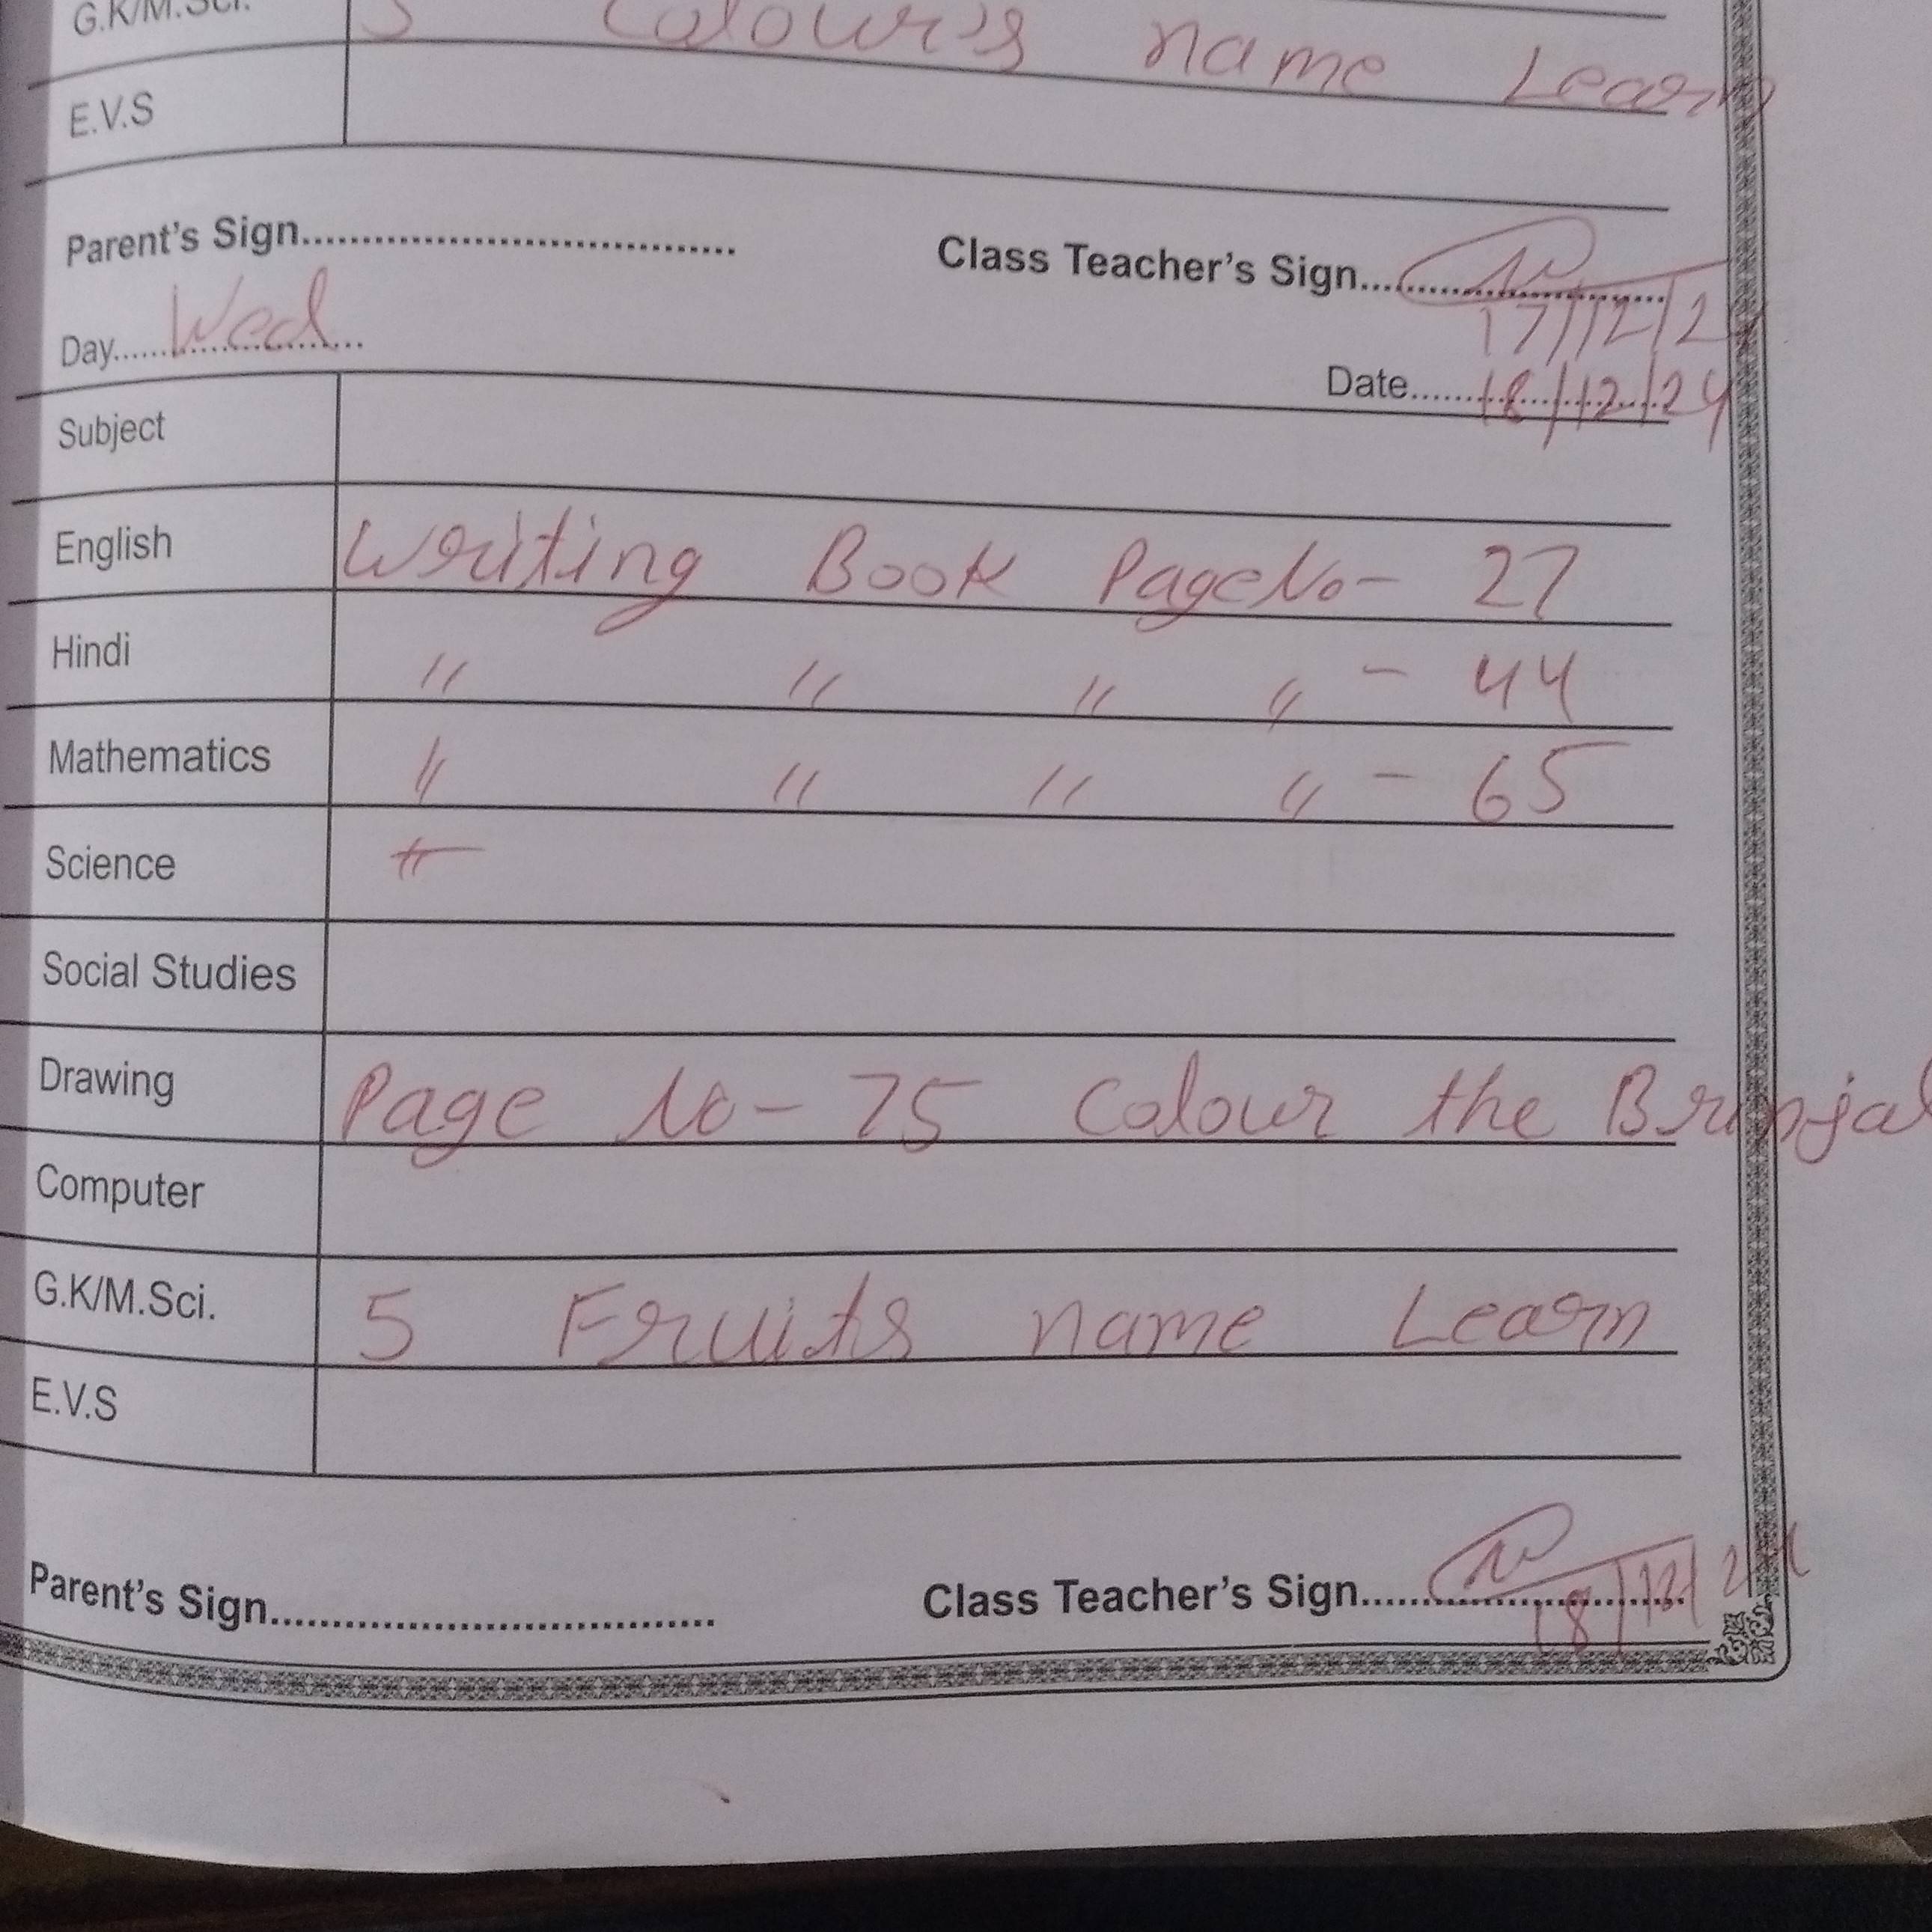 G.K/M.Sci. 5 Colour's name Learn
E.V.S
Parent's Sign.................................... Class Teacher's Sign.........................
17/12/2
Day......Wed...........
Date......18/12/24
Subject
English Writing Book Page No - 27
Hindi " " " " - 44
Mathematics " " " " - 65
Science
Social Studies
Drawing Page No - 75 Colour the Brinjal
Computer
G.K/M.Sci. 5 Fruits name Learn
E.V.S
Parent's Sign.................................... Class Teacher's Sign..........................
18/12/24